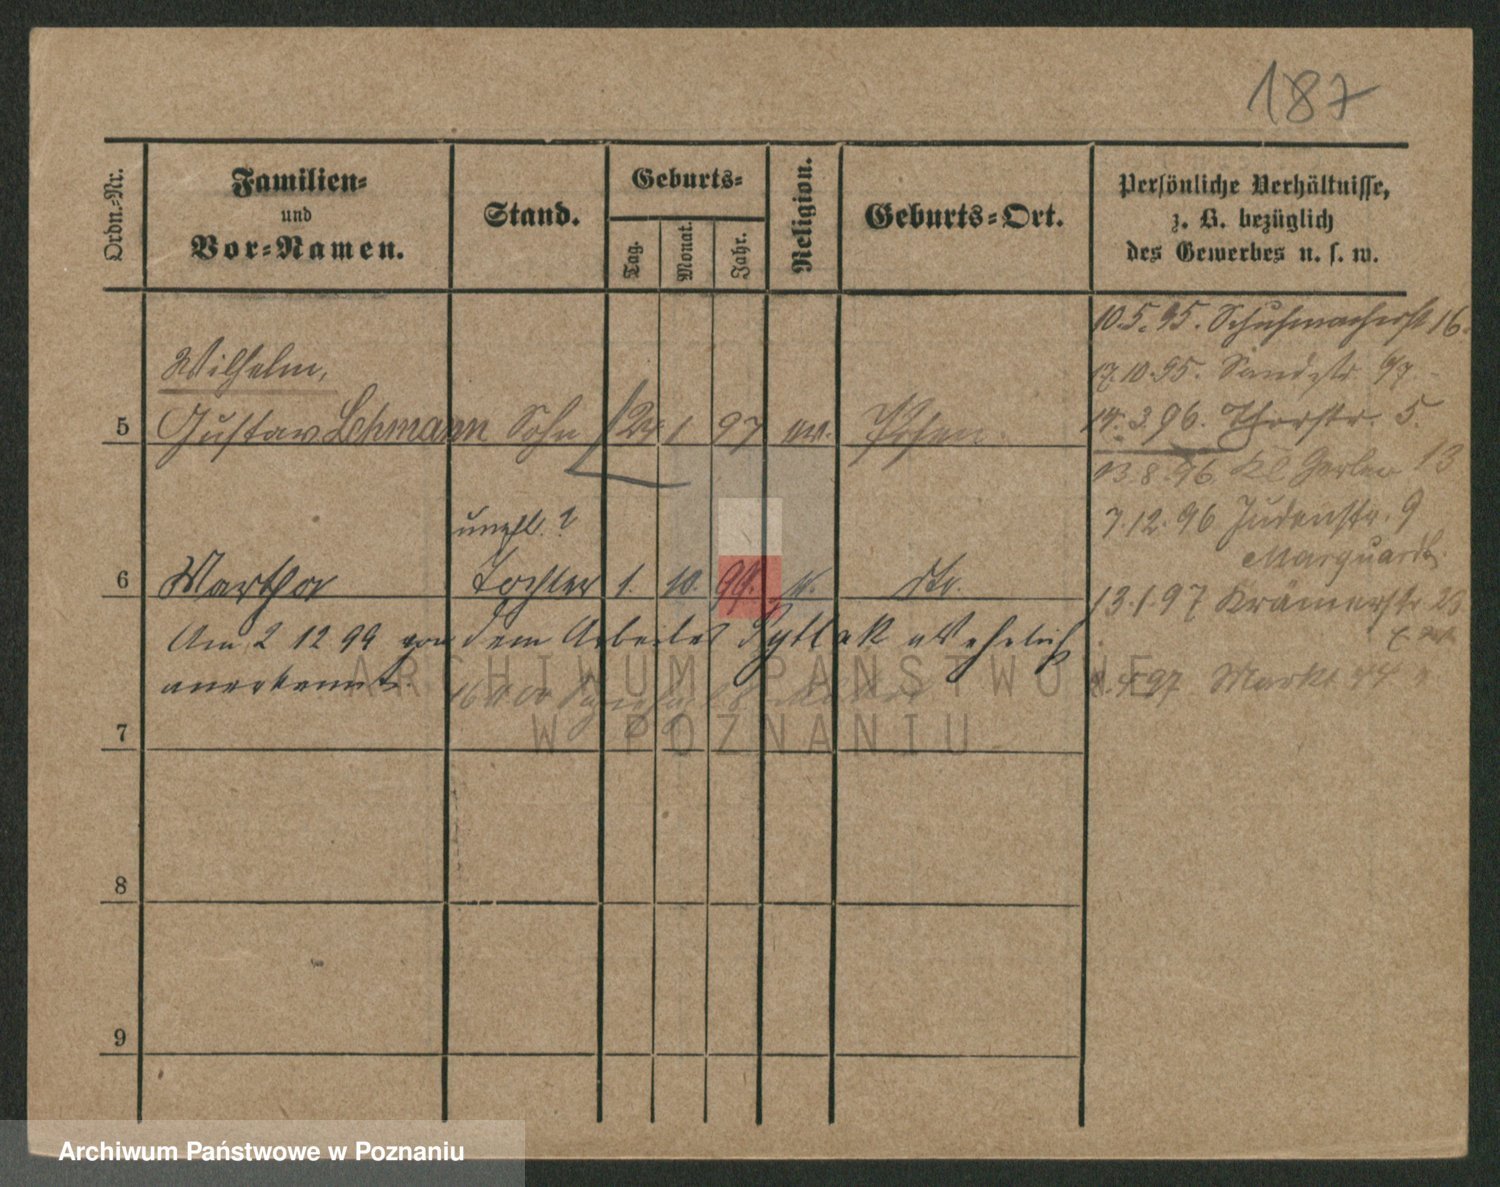 187
Ordn.-Nr.
Familien-
und
Vor-Namen.
Stand.
Geburts-
Tag.
Monat.
Jahr.
Religion.
Geburts-Ort.
Persönliche Verhältnisse,
z. B. bezüglich
des Gewerbes u. s. w.
10.5.95. Schuhmacherst 16.
Wilhelm,
17.10.95. Sandstr.
5 Gustav Lehmann Sohn 24 1 97 ev. Posen.
14.3.96. Thorstr. 5.
13.8.96. Kl Gerber 13
unehl. ?
7.12.96. Judenstr. 9
Marquardt.
6 Martha Tochter 1. 10. 99. k. dto.
13.1.97 Krämerstr 23
Am 2 12 99 von dem Arbeiter als ehelich
anerkannt.
97 Markt 44
7
8
9
ARCHIWUM PAŃSTWOWE
W POZNANIU
Archiwum Państwowe w Poznaniu